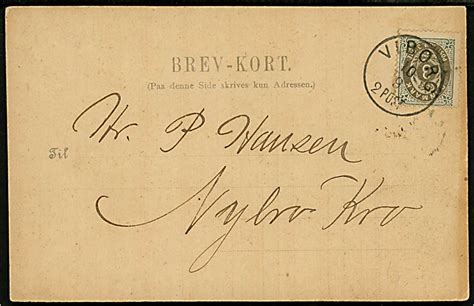 BREV-KORT.
(Paa denne Side skrives kun Adressen.)
VIBORG
2 POST
Til
Hr. P Hansen
Nybro Kro